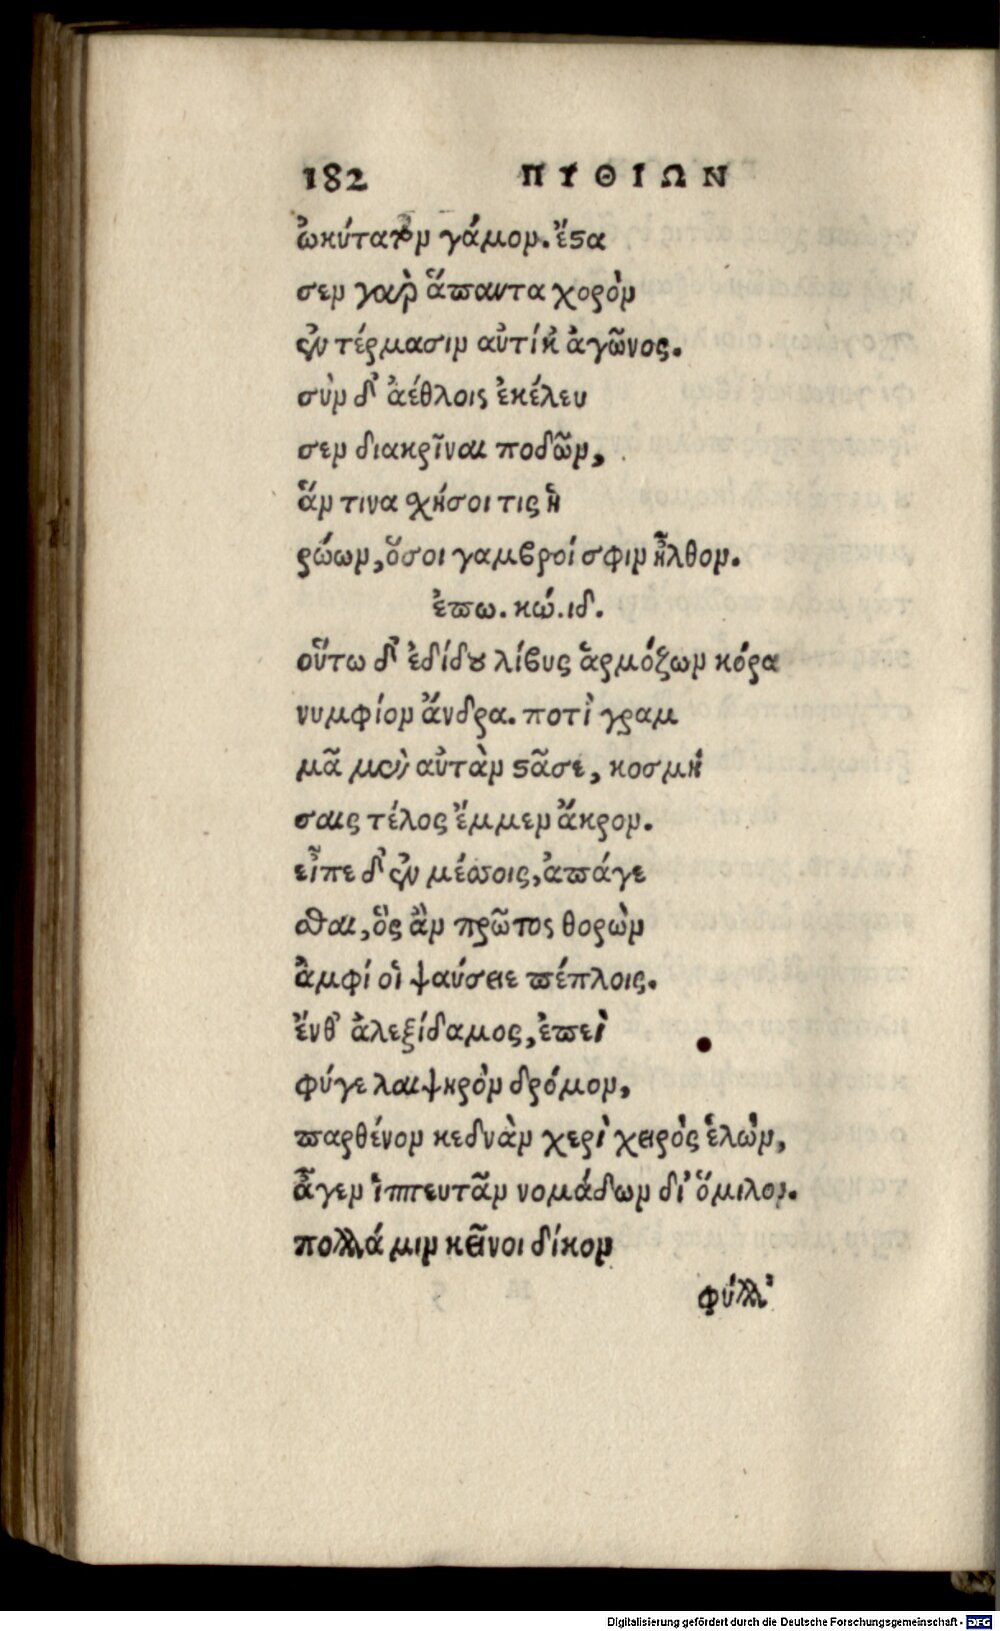 182 ΠΥΘΙΩΝ
ὠκύτατον γάμον. ἔστα
σεν γαὶρ ἅπαντα χορὸν
ἐν τέρμασιν αὐτίκ᾽ ἀγῶνος.
σὺν δ᾽ ἀέθλοις ἐκέλευ
σεν διακρῖναι ποδῶν,
ἅν τινα σχήσοι τις ἡ
ρώων, ὅσοι γαμβροί σφιν ἦλθον.
ἐπω. κώ. ιδ.
οὕτω δ᾽ ἐδίδου λίβυς ἁρμόζων κόρα
νυμφίον ἄνδρα. ποτὶ γραμ
μᾶ μὲν αὐτὰν στᾶσε, κοσμή
σαις τέλος ἔμμεν ἄκρον.
εἶπε δ᾽ ἐν μέσοις, ἀπάγε
σθαι, ὃς ἂν πρῶτος θορὼν
ἀμφί οἱ ψαύσειε πέπλοις.
ἔνθ᾽ ἀλεξίδαμος, ἐπεὶ
φύγε λαιψηρὸν δρόμον,
παρθένον κεδνὰν χερὶ χειρὸς ἑλὼν,
ἆγεν ἱππευτᾶν νομάδων δι᾽ ὅμιλον.
πολλά μιν κεῖνοι δίκον
φύλλ᾽
Digitalisierung gefördert durch die Deutsche Forschungsgemeinschaft - DFG